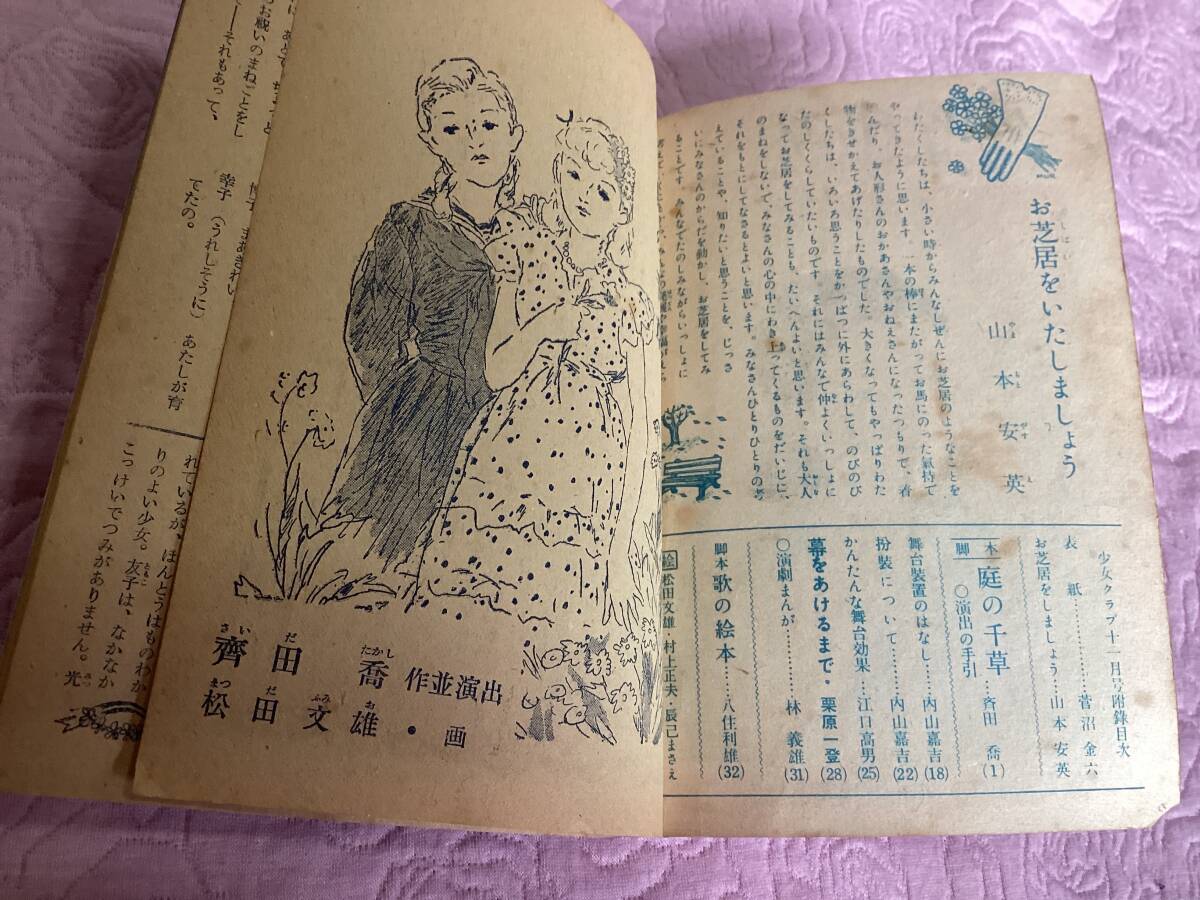 お芝居をいたしましょう
山本安英
わたくしたちは、小さい時からみんなしぜんにお芝居のようなことを
やってきたように思います。一本の棒にまたがってお馬にのった氣持で
せんだり、お人形さんのおかあさんやおねえさんになったつもりで、着
物をきせかえてあげたりしたものでした。大きくなってもやっぱりわた
くしたちは、いろいろ思うことをかっぱつに外にあらわして、のびのび
たのしくくらしていたいものです。それにはみんなで仲よくいっしょに
なってお芝居をしてみることも、たいへんよいと思います。それも大人
のまねをしないで、みなさんの心の中にわき上ってくるものをだいじに、
それをもとにしてなさるとよいと思います。みなさんひとりひとりの考
えていることや、知りたいと思うことを、じっさ
いにみなさんのからだを動かし、お芝居をしてみ
ることです。みんなでたのしみながらいっしょに
少女クラブ十一月号附錄目次
表紙……菅沼金六
お芝居をしましょう……山本安英
脚本 庭の千草……斉田喬(1)
○演出の手引
舞台裝置のはなし……內山嘉吉(18)
扮裝について……內山嘉吉(22)
かんたんな舞台効果……江口高男(25)
幕をあけるまで・栗原一登(28)
○演劇まんが……林義雄(31)
脚本 歌の絵本……八住利雄(32)
絵 松田文雄・村上正夫・辰己まさえ
齊田喬 作並演出
松田文雄・画
お戰いのまねごとをし
――それもあって、
幸子 (うれしそうに) あたしが育
てたの。
れているが、ほんとうはものわか
りのよい少女。友子は、なかなか
こっけいでつみがありません。光